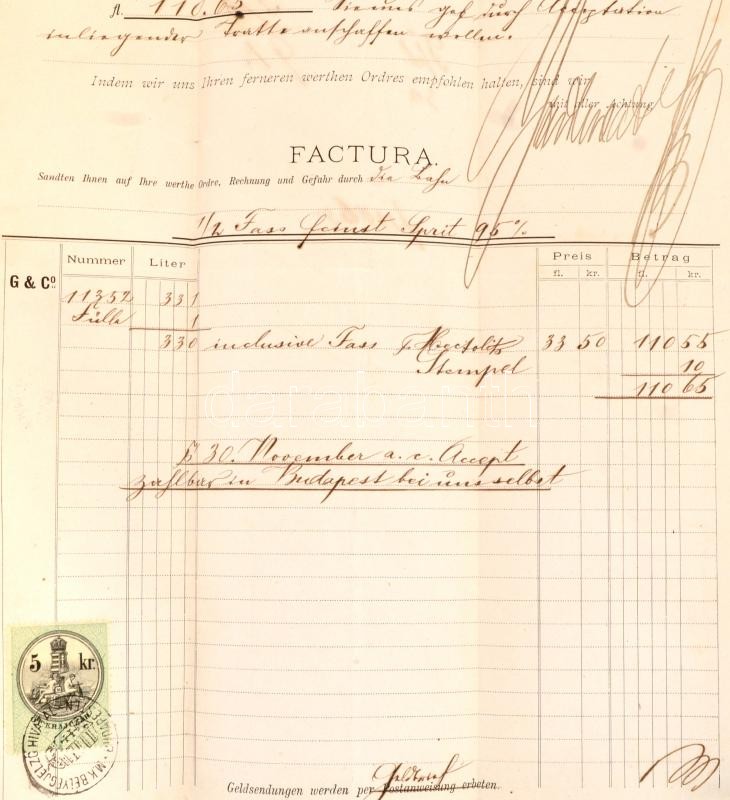 fl. 110.65 Sie uns gef. durch Acceptation
inliegender Tratte anschaffen wollen.
Indem wir uns Ihren ferneren werthen Ordres empfohlen halten, sind wir
mit aller Achtung
FACTURA.
Sandten Ihnen auf Ihre werthe Ordre, Rechnung und Gefahr durch die Bahn
1/2 Fass feinst Sprit 95%
G & Co.
Nummer Liter Preis Betrag
fl. kr. fl. kr.
11352 331
Fülle 1
330 inclusive Fass p. Hectolit. 33 50 110 55
Stempel 10
110 65
30. November a. c. Accept
zahlbar in Budapest bei uns selbst
5 kr.
KRAJCZÁR
Geldbrief
Geldsendungen werden per Postanweisung erbeten.